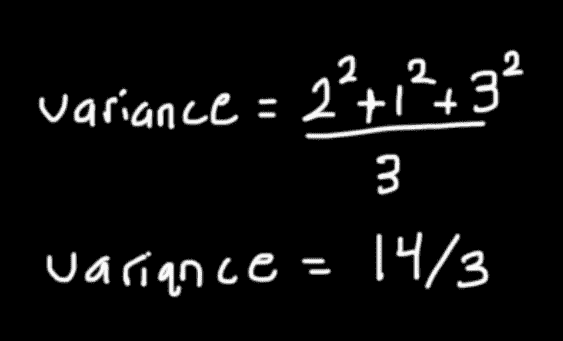 variance = 2²+1²+3²
3
variance = 14/3